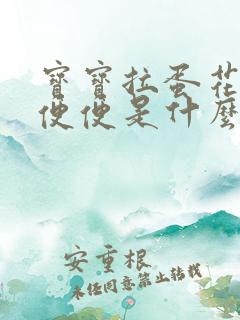 寶寶拉蛋花
便便是什麼
安重根
未经同意禁止转载